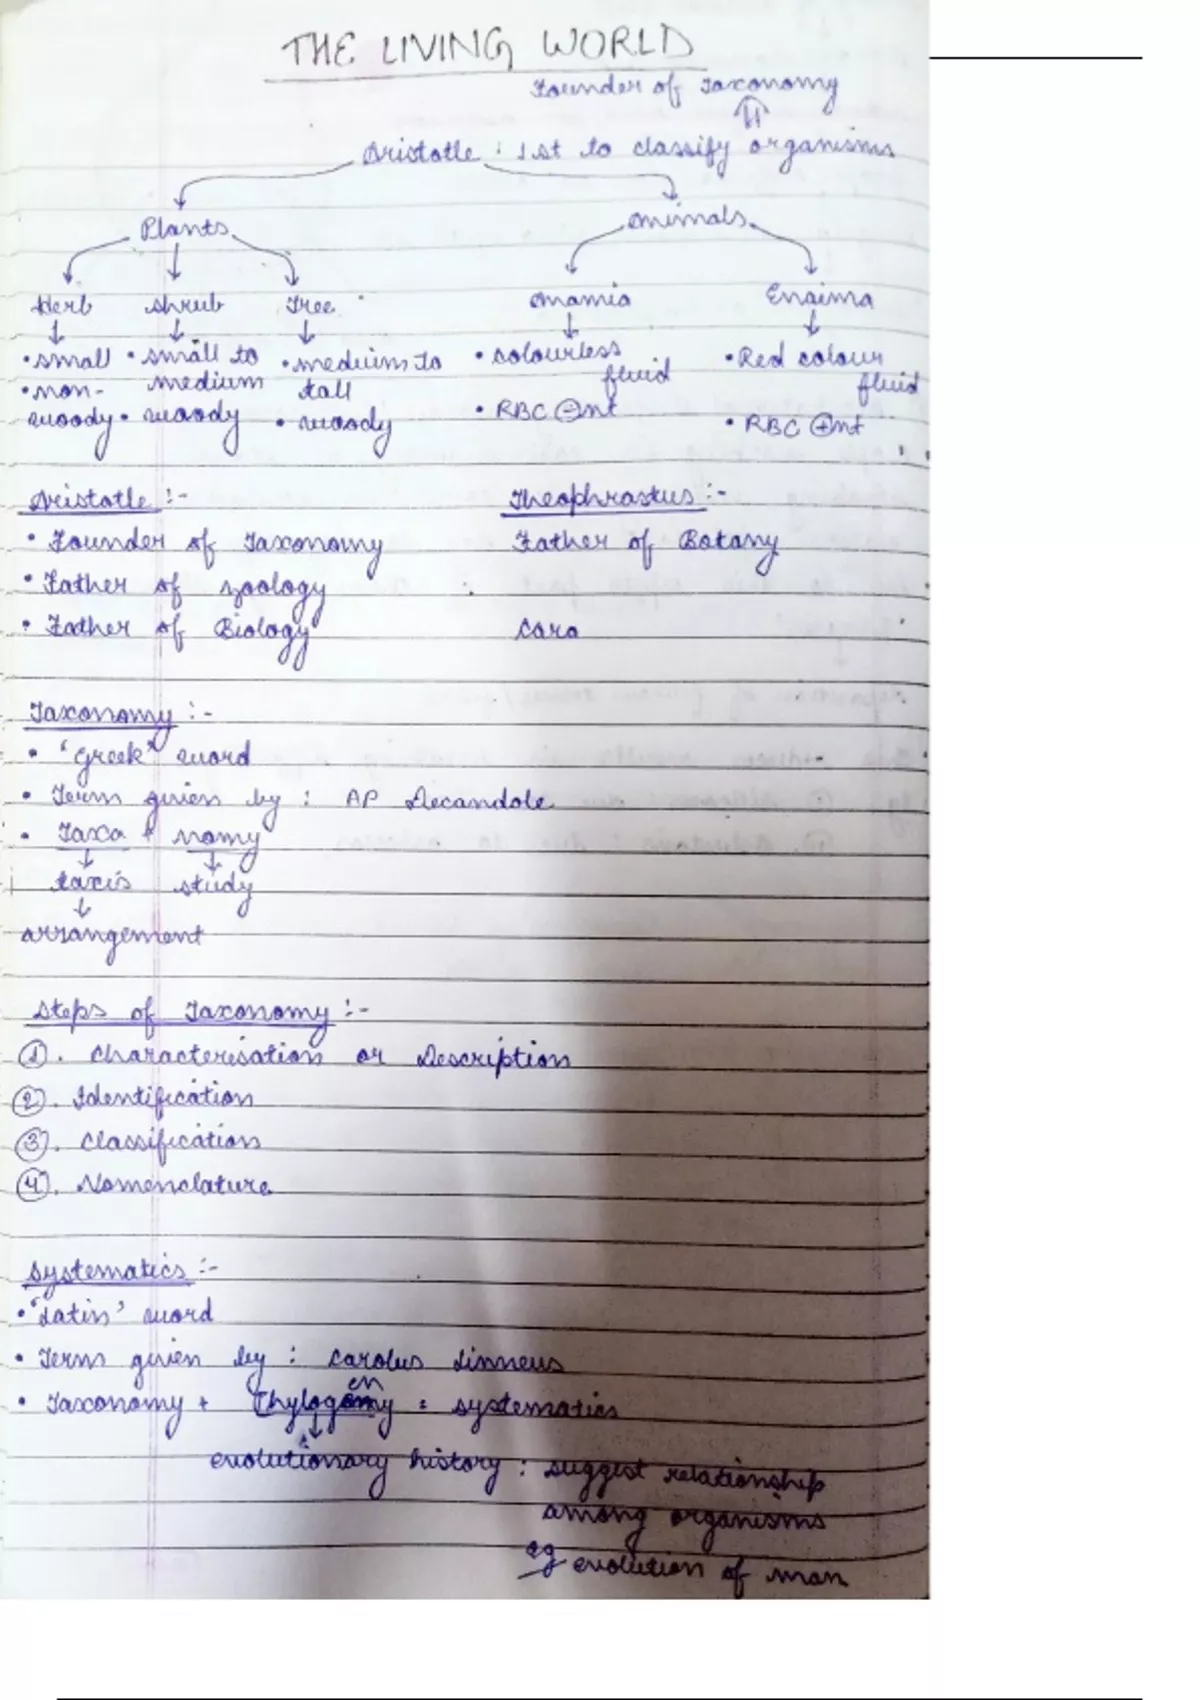 THE LIVING WORLD
Founder of Taxonomy
Aristotle : 1st to classify organisms
Plants Animals
Herb Shrub Tree Anamia Enaima
• small • small to • medium to • colourless • Red colour
• non- medium tall fluid fluid
woody • woody • woody • RBC ⊖nt • RBC ⊕nt
Aristotle :- Theophrastus :-
• Founder of Taxonomy Father of Botany
• Father of zoology
• Father of Biology
Taxonomy :-
• 'Greek' word
• Term given by : AP Decandole
• Taxa + nomy
taxis study
arrangement
Steps of Taxonomy :-
①. Characterisation or Description
②. Identification
③. Classification
④. Nomenclature
Systematics :-
• 'Latin' word
• Term given by : Carolus Linneus
• Taxonomy + Phylogeny = systematics
evolutionary history : suggest relationship
among organisms
eg evolution of man